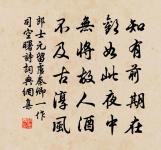 知有前期在
歡如此夜中
無將故人酒
不及古淳風
郎士元留盧秦卿一作
司空曙詩詞典網集